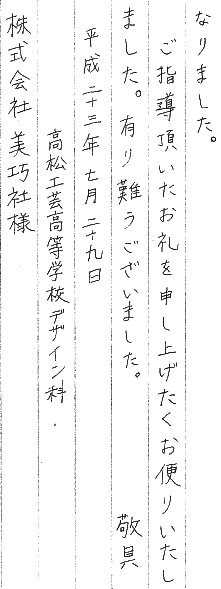 なりました。
ご指導頂いたお礼を申し上げたくお便りいたし
ました。有り難うございました。
敬具
平成二十三年七月二十九日
高松工芸高等学校デザイン科.
株式会社 美巧社様